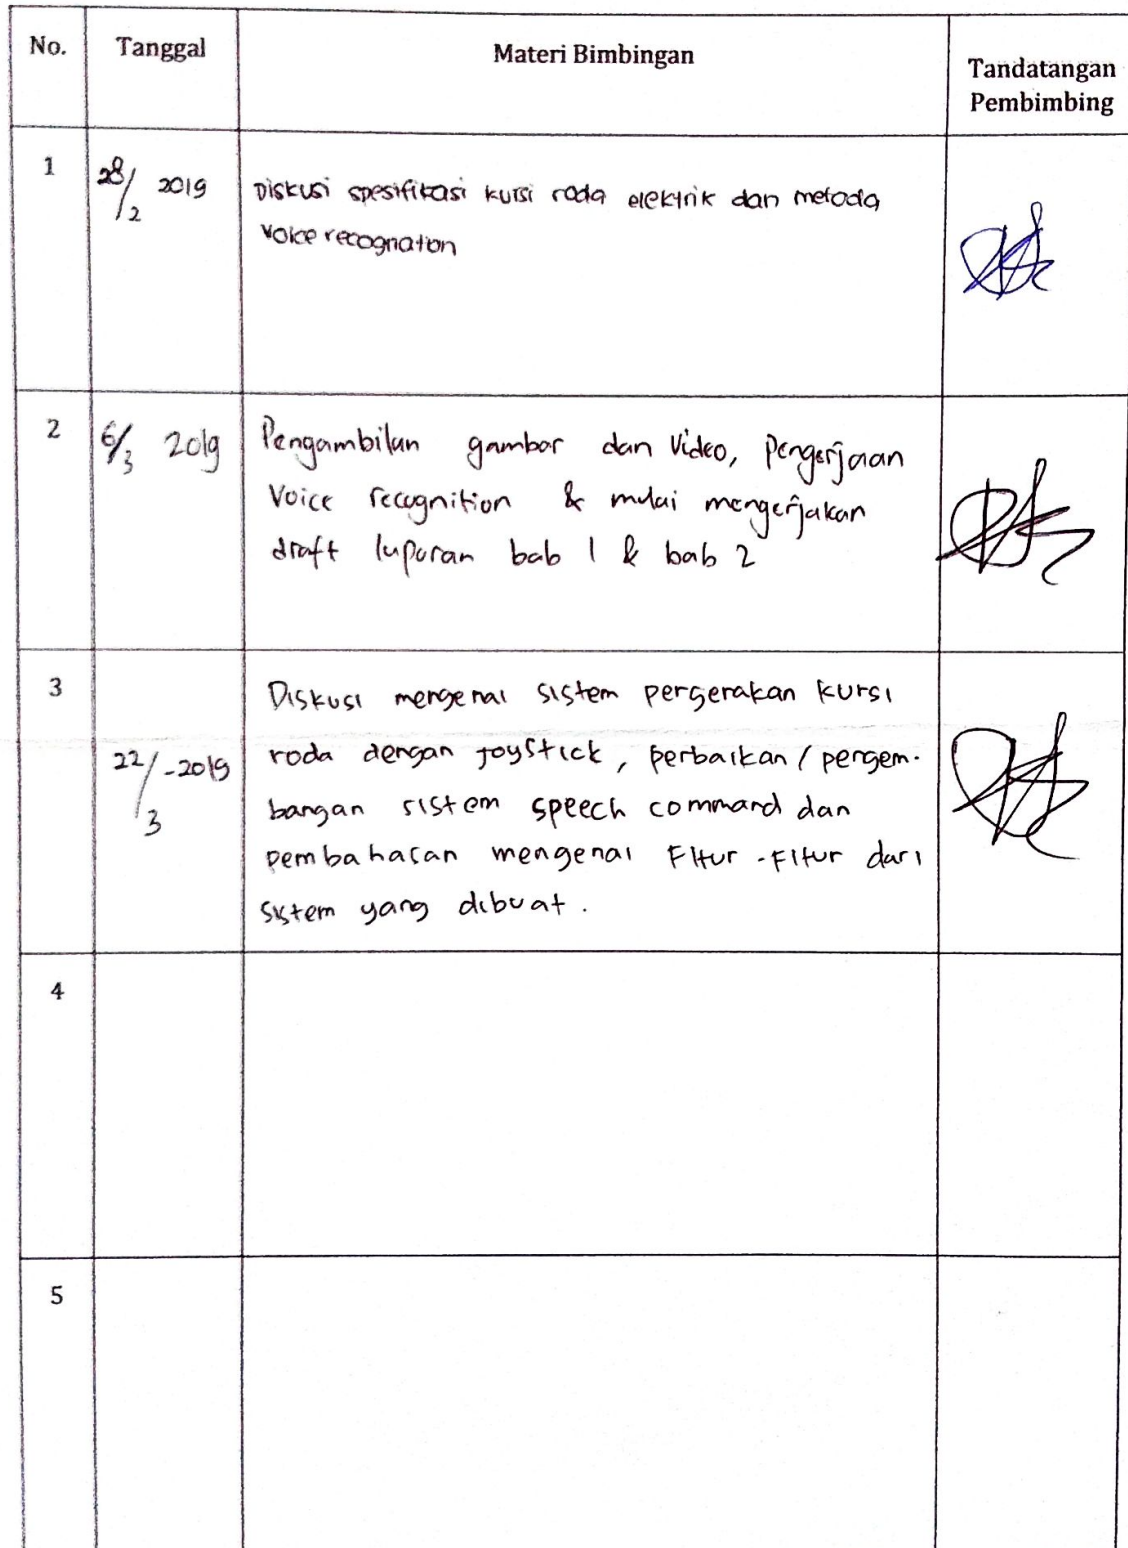 No. Tanggal Materi Bimbingan Tandatangan
Pembimbing
1 28/2 2019 Diskusi spesifikasi kursi roda elektrik dan metoda
voice recognation
2 6/3 2019 Pengambilan gambar dan Video, Pengerjaan
Voice recognition & mulai mengerjakan
draft laporan bab 1 & bab 2
3 Diskusi mengenai sistem pergerakan kursi
22/3-2019 roda dengan joystick, perbaikan / pergem-
bangan sistem speech command dan
pembahasan mengenai Fitur-Fitur dari
sistem yang dibuat.
4
5